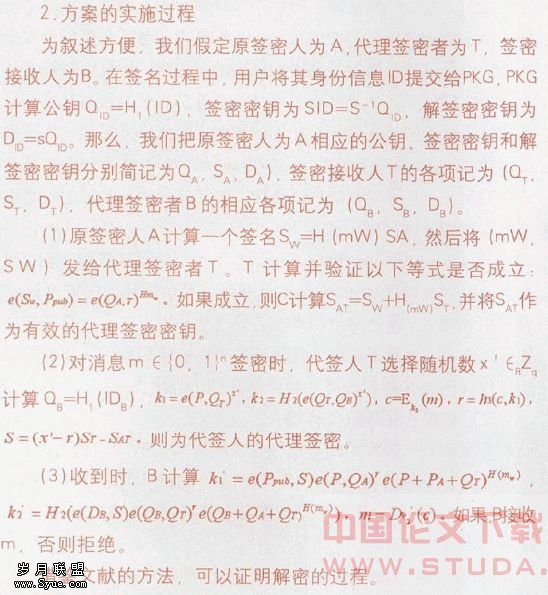 2.方案的实施过程
为叙述方便，我们假定原签密人为A,代理签密者为T，签密
接收人为B。在签名过程中，用户将其身份信息ID提交给PKG，PKG
计算公钥Q_ID=H_1(ID)，签密密钥为SID=S^-1Q_ID，解签密密钥为
D_ID=sQ_ID。那么，我们把原签密人为A相应的公钥、签密密钥和解
签密密钥分别简记为Q_A，S_A，D_A)，签密接收人T的各项记为 (Q_T，
S_T，D_T)，代理签密者B的相应各项记为 (Q_B，S_B，D_B)。
(1)原签密人A计算一个签名S_W=H (mW) SA，然后将 (mW，
SW) 发给代理签密者T。T 计算并验证以下等式是否成立：
e(S_w,P_pub) = e(Q_A,T)^Hm_w。如果成立，则C计算S_AT=S_W+H_(mW)S_T,并将S_AT作
为有效的代理签密密钥。
(2)对消息m∈{0，1}^n签密时，代签人T选择随机数x'∈_RZ_q
计算 Q_B=H_1(ID_B)，k_1=e(P,Q_T)^x'，k_2=H_2(e(Q_T,Q_B)^x')，c=E_k2(m)，r=h_3(c,k_1)，
S=(x'-r)S_T-S_AT。则为代签人的代理签密。
(3)收到时，B计算 k_1'=e(P_pub,S)e(P,Q_A)^r e(P+P_A+Q_T)^H(m_w)，
k_2'=H_2(e(D_B,S)e(Q_B,Q_T)^r e(Q_B+Q_A+Q_T)^H(m_w))，m=D_k2'(c)。如果,B接收
m，否则拒绝。
文献的方法，可以证明解密的过程。
中国论文下载
WWW.STUDA.
岁月联盟
www.5yue.com